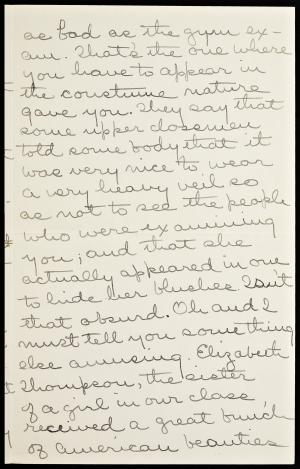 as bad as the gym ex-
am. That's the one where
you have to appear in
the constume nature
gave you. They say that
some upper classmen
told some body that it
was very nice to wear
a very heavy veil so
as not to see the people
who were examining
you; and that she
actually appeared in one
to hide her blushes. Isn't
that absurd. Oh and I
must tell you some thing
else amusing. Elizabeth
Thompson, the sister
of a girl in our class,
received a great bunch
of American beauties